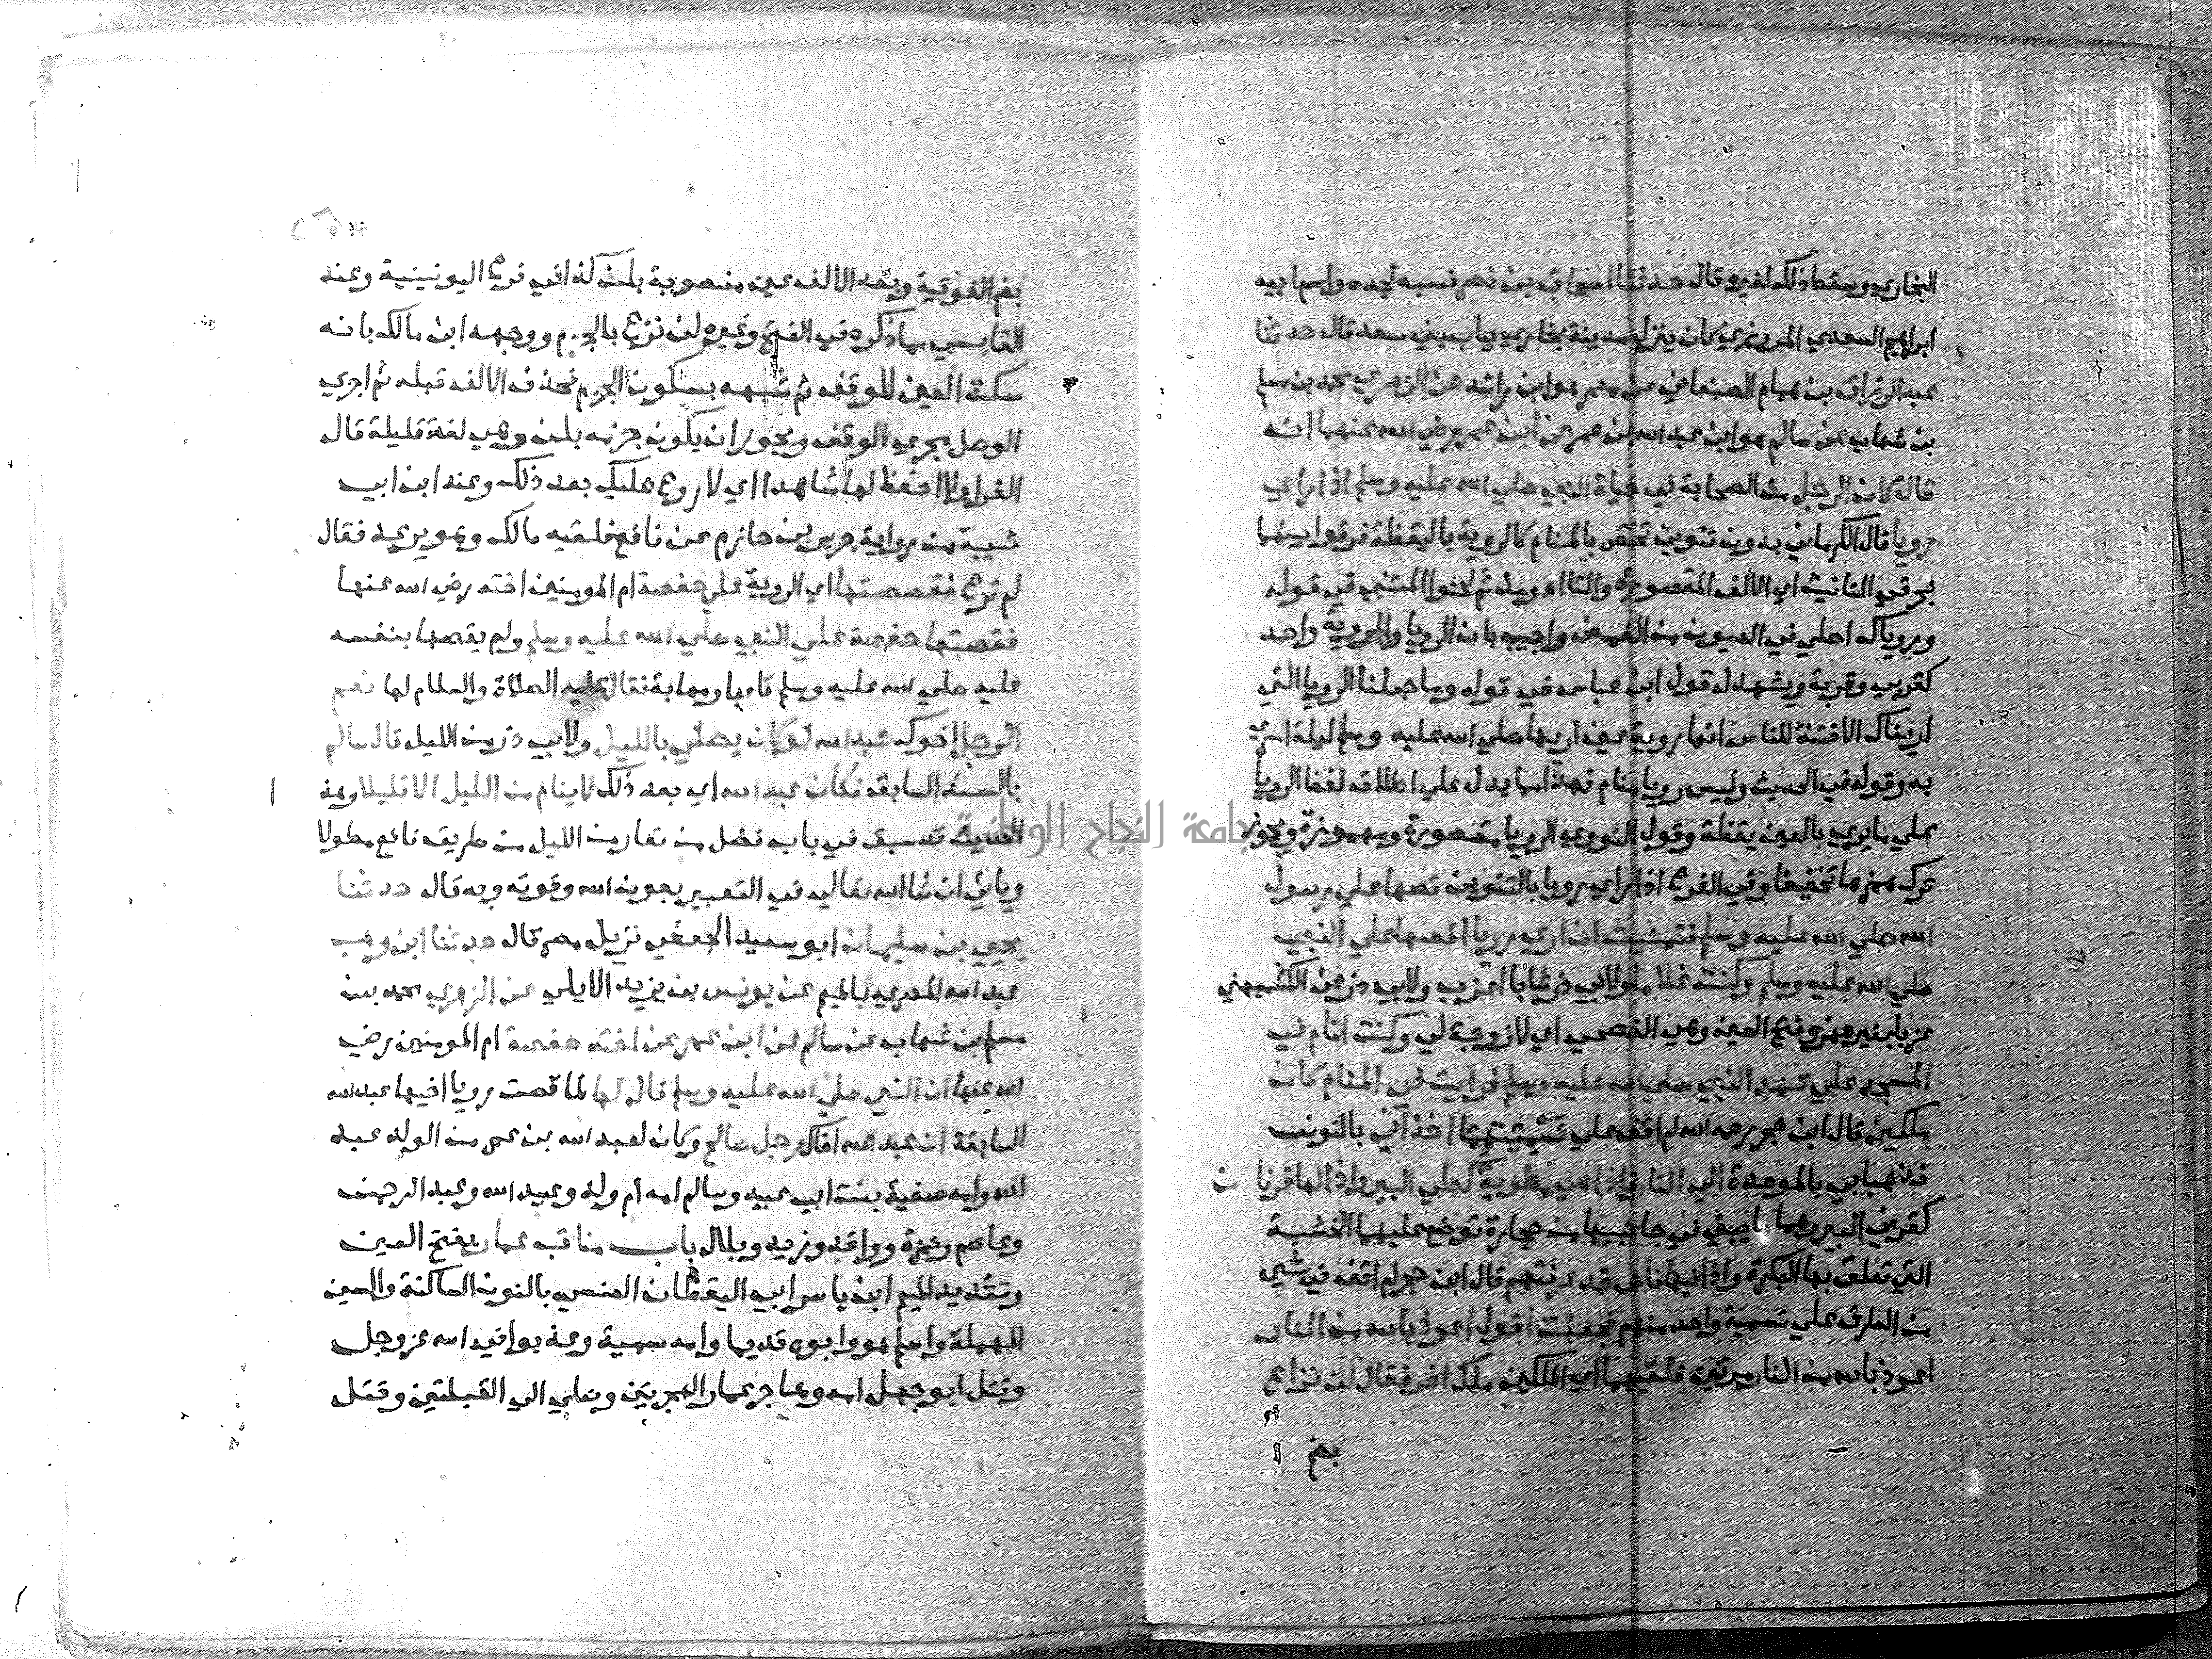 البخاري وسقط ذلك لغيره قال حدثنا اسحاق بن نصر نسبه لجده واسم ابيه
ابراهيم السعدي المروزي كان ينزل مدينة بخاري بباب بني سعد قال حدثنا
عبد الرزاق بن همام الصنعاني عن معمر هو ابن راشد عن الزهري محمد بن مسلم
بن شهاب عن سالم هو ابن عبد الله بن عمر عن ابن عمر رضي الله عنهما انه
قال كان الرجل من الصحابة في حياة النبي صلي الله عليه وسلم اذا راي
رويا قال الكرماني بدون تنوين تختص بالمنام كالروية باليقظة فرقوا بينهما
بحرفي التانيث اي الالف المقصورة والتا اه ومن ثم لحنوا المتنبي في قوله
وروياك احلي في العيون من الغمض واجيب بان الرويا والروية واحد
كقربي وقربة ويشهد له قول ابن عباس في قوله وما جعلنا الرويا التي
اريناك الا فتنة للناس انها روية عين اريها صلي الله عليه وسلم ليلة اسري
به وقوله في الحديث وليس رويا منام فهذا مما يدل علي اطلاق لفظ الرويا
علي ما يري بالعين يقظة وقول النووي الرويا مقصورة ومهموزة ويجوز
ترك همزها تخفيفا وفي الفرع اذا راي رويا بالتنوين قصها علي رسول
الله صلي الله عليه وسلم فتمنيت ان اري رويا اقصها علي النبي
صلي الله عليه وسلم وكنت غلاما ولابي ذر شابا اعزب ولابيه ذر عن الكشميهني
عزبا بغير همز وفتح العين وهي الفصحي اي لا زوجة لي وكنت انام في
المسجد علي عهد النبي صلي الله عليه وسلم فرايت في المنام كان
ملكين قال ابن حجر رحمه الله لم اقف علي تسميتهما اخذاني بالنون
فذهبا بي بالموحدة الي النار فاذا هي مطوية كطي البير واذا لها قرنان
كقرني البير وهما ما يبني في جانبيها من حجارة توضع عليها الخشبة
التي تعلق بها البكرة واذا فيها ناس قد عرفتهم قال ابن حجر لم اقف في شي
من الطرق علي تسمية واحد منهم فجعلت اقول اعوذ بالله من النار
اعوذ بالله من النار مرتين فلقيهما اي الملكين ملك اخر فقال لن تراع
بضم
بضم الفوقية وبعد الالف عين منصوبة بلن كذا في فرع اليونينية وعند
القابسي مما ذكره في الفتح وغيره لن ترع بالجزم ووجهه ابن مالك بانه
سكت العين للوقف ثم شبهه بسكون الجزم فحذف الالف قبله ثم اجري
الوصل مجري الوقف ويجوز ان يكون جزمه بلن وهي لغة قليلة قال
الفرا ولا احفظ لها شاهدا اي لا روع عليك بعد ذلك وعند ابن ابي
شيبة من رواية جرير بن حازم عن نافع فلقيه مالك وهو يرعد فقال
لم ترع فقصصتها اي الروية علي حفصة ام المومنين اخته رضي الله عنها
فقصتها حفصة علي النبي صلي الله عليه وسلم ولم يقصها بنفسه
عليه صلي الله عليه وسلم تادبا ومهابة فقال عليه الصلاة والسلام لها نعم
الرجل اخوك عبد الله لو كان يصلي بالليل ولابي ذر من الليل قال سالم
بالسند السابق فكان عبد الله اي بعد ذلك لا ينام من الليل الا قليلا وهذا
الحديث قد سبق في باب فضل من تعار من الليل من طريق نافع مطولا
وياتي ان شا الله تعالي في التعبير بعون الله وقوته وبه قال حدثنا
يحيي بن سليمان ابو سعيد الجعفي نزيل مصر قال حدثنا ابن وهب
عبد الله المصري بالميم عن يونس بن يزيد الايلي عن الزهري محمد بن
مسلم بن شهاب عن سالم عن ابن عمر عن اخته حفصة ام المومنين رضي
الله عنها ان النبي صلي الله عليه وسلم قال لها لما قصت رويا اخيها عبد الله
السابقة ان عبد الله اخاك رجل صالح وكان لعبد الله بن عمر من الولد عبد
الله وامه صفية بنت ابي عبيد وسالم امه ام ولد وعبيد الله وعبد الرحمن
وعاصم وحمزة وواقد وزيد وبلال باب مناقب عمار بفتح العين
وتشديد الميم ابن ياسر ابي اليقظان العنسي بالنون الساكنة والسين
المهملة واسلم هو وابوه قديما وامه سمية وعذبوا في الله عز وجل
وقتل ابو جهل امه وهاجر عمار الهجرتين وصلي الي القبلتين وقتل
جامعة النجاح الوطنية